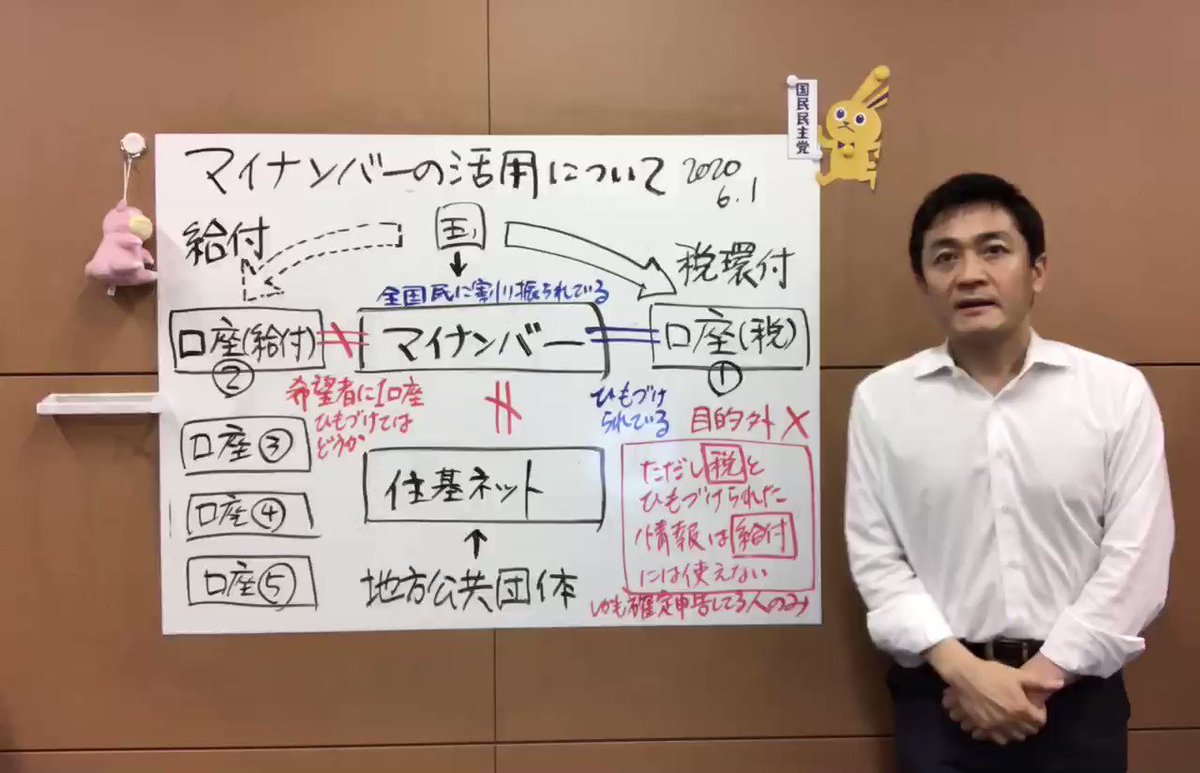 国民民主党
マイナンバーの活用について
2020
6.1
給付
国
税環付
全国民に割り振られている
口座(給付)
②
マイナンバー
口座(税)
①
希望者に1口座
ひもづけては
どうか
ひもづけ
られている
目的外×
口座③
住基ネット
ただし税と
ひもづけられた
情報は給付
には使えない
口座④
口座⑤
地方公共団体
しかも確定申告してる人のみ